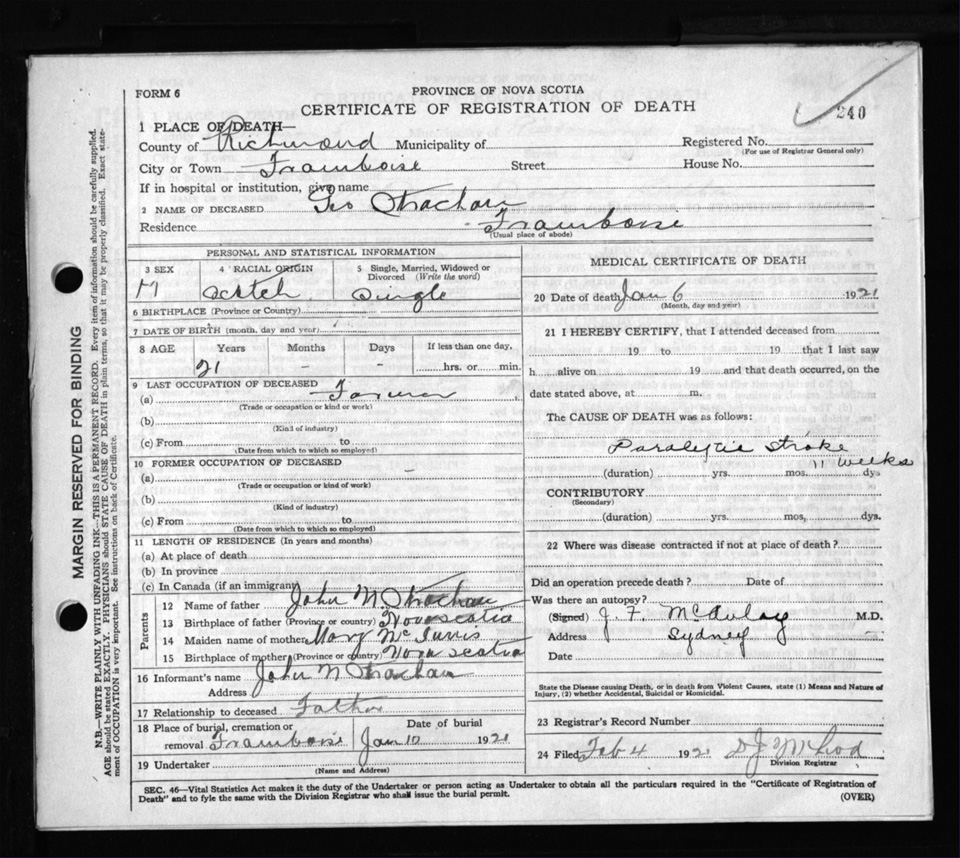 FORM 6
PROVINCE OF NOVA SCOTIA
CERTIFICATE OF REGISTRATION OF DEATH
240
1 PLACE OF DEATH—
County of Richmond Municipality of
Registered No.
(For use of Registrar General only)
City or Town Framboise Street House No.
If in hospital or institution, give name
2 NAME OF DECEASED Geo Strachan
Residence Framboise
(Usual place of abode)
PERSONAL AND STATISTICAL INFORMATION
3 SEX
M
4 RACIAL ORIGIN
Scotch
5 Single, Married, Widowed or
Divorced (Write the word)
Single
6 BIRTHPLACE (Province or Country)
7 DATE OF BIRTH (month, day and year)
8 AGE Years Months Days If less than one day,
21 - - hrs. or min.
9 LAST OCCUPATION OF DECEASED
(a) Farmer
(Trade or occupation or kind or work)
(b)
(Kind of industry)
(c) From to
(Date from which to which so employed)
10 FORMER OCCUPATION OF DECEASED
(a) -
(Trade or occupation or kind of work)
(b)
(Kind of industry)
(c) From to
(Date from which to which so employed)
11 LENGTH OF RESIDENCE (In years and months)
(a) At place of death
(b) In province
(c) In Canada (if an immigrant)
Parents
12 Name of father John M. Strachan
13 Birthplace of father (Province or country) Nova scotia
14 Maiden name of mother Mary Mc
15 Birthplace of mother (Province or country) Nova scotia
16 Informant's name John M Strachan
Address
17 Relationship to deceased Father
18 Place of burial, cremation or Date of burial
removal Framboise Jan 10 1921
19 Undertaker
(Name and Address)
MEDICAL CERTIFICATE OF DEATH
20 Date of death Jan 6 1921
(Month, day and year)
21 I HEREBY CERTIFY, that I attended deceased from
19 to 19 that I last saw
h alive on 19 and that death occurred, on the
date stated above, at m.
The CAUSE OF DEATH was as follows:
Paralytic Stroke
11 weeks
(duration) yrs. mos. dys
CONTRIBUTORY
(Secondary)
(duration) yrs. mos, dys.
22 Where was disease contracted if not at place of death?
Did an operation precede death? Date of
Was there an autopsy?
(Signed) J. F. McAulay M.D.
Address Sydney
Date
State the Disease causing Death, or in death from Violent Causes, state (1) Means and Nature of
Injury, (2) whether Accidental, Suicidal or Homicidal.
23 Registrar's Record Number
24 Filed Feb 4 1921 D J McLeod
Division Registrar
SEC. 46—Vital Statistics Act makes it the duty of the Undertaker or person acting as Undertaker to obtain all the particulars required in the "Certificate of Registration of
Death" and to fyle the same with the Division Registrar who shall issue the burial permit.
(OVER)
MARGIN RESERVED FOR BINDING
N.B.—WRITE PLAINLY WITH UNFADING INK—THIS IS A PERMANENT RECORD. Every item of information should be carefully supplied.
AGE should be stated EXACTLY. PHYSICIANS should STATE CAUSE OF DEATH in plain terms, so that it may be properly classified. Exact state-
ment of OCCUPATION is very important. See instructions on back of Certificate.